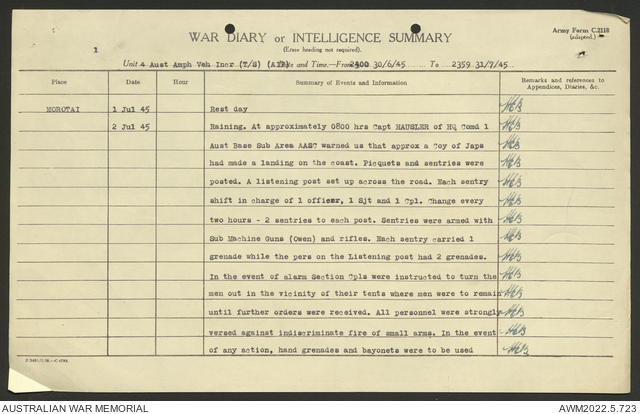 WAR DIARY or INTELLIGENCE SUMMARY
(Erase heading not required).
Army Form C.2118
(adapted.)
1
Unit 4 Aust Amph Veh Incr (T/S) (AIF) Date and Time.—From 2400 30/6/45. To 2359 31/7/45.
Place Date Hour Summary of Events and Information Remarks and references to Appendices, Diaries, &c.
MOROTAI 1 Jul 45 Rest day
2 Jul 45 Raining. At approximately 0800 hrs Capt HAUSLER of HQ Comd 1
Aust Base Sub Area AASC warned us that approx a Coy of Japs
had made a landing on the coast. Picquets and sentries were
posted. A listening post set up across the road. Each sentry
shift in charge of 1 officer, 1 Sjt and 1 Cpl. Change every
two hours - 2 sentries to each post. Sentries were armed with
Sub Machine Guns (Owen) and rifles. Each sentry carried 1
grenade while the pers on the Listening post had 2 grenades.
In the event of alarm Section Cpls were instructed to turn the
men out in the vicinity of their tents where men were to remain
until further orders were received. All personnel were strongly
versed against indiscriminate fire of small arms. In the event
of any action, hand grenades and bayonets were to be used
AUSTRALIAN WAR MEMORIAL
AWM2022.5.723